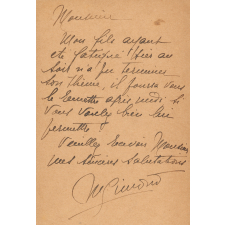 Monsieur
Mon fils ayant
été fatigué hier au
soir n'a pu terminer
son thème, il pourra vous
le remettre après midi si
vous voulez bien lui
permettre
Veuillez recevoir Monsieur
mes sincères salutations